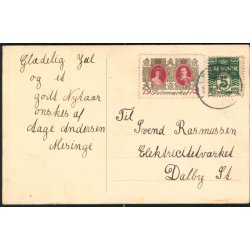 Glædelig Jul
og et
godt Nytaar
ønskes af
Aage Andersen
Mesinge
Til
Svend Rasmussen
Elektricitetsværket
Dalby St.
Julemærket
DANMARK
5